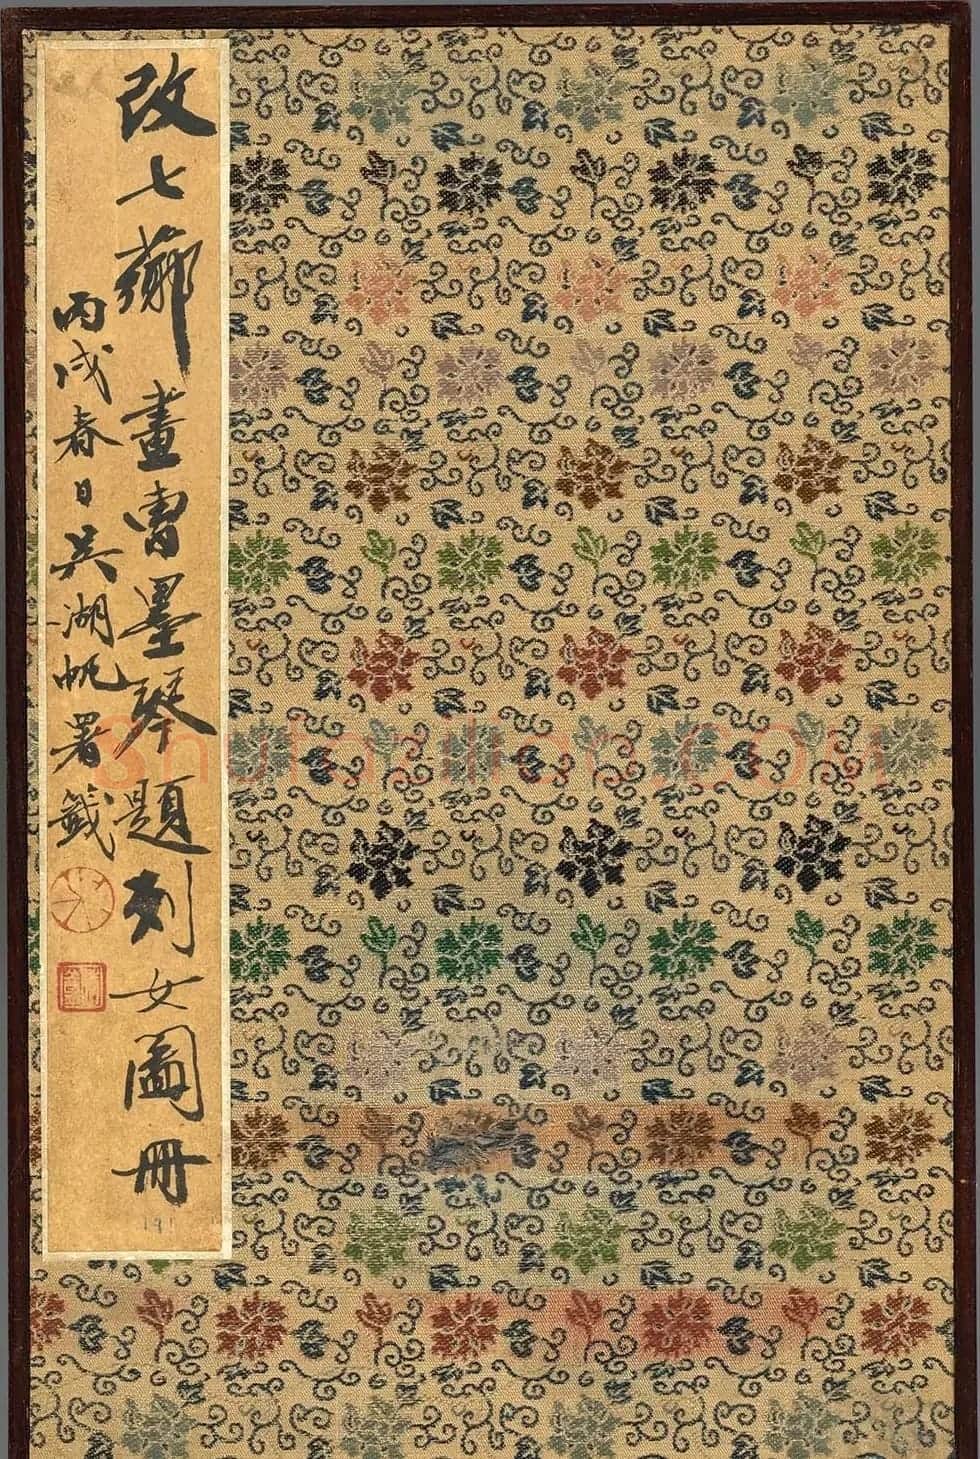 改七薌畫曹墨琴題列女圖冊
丙戌春日吳湖帆署籤
191